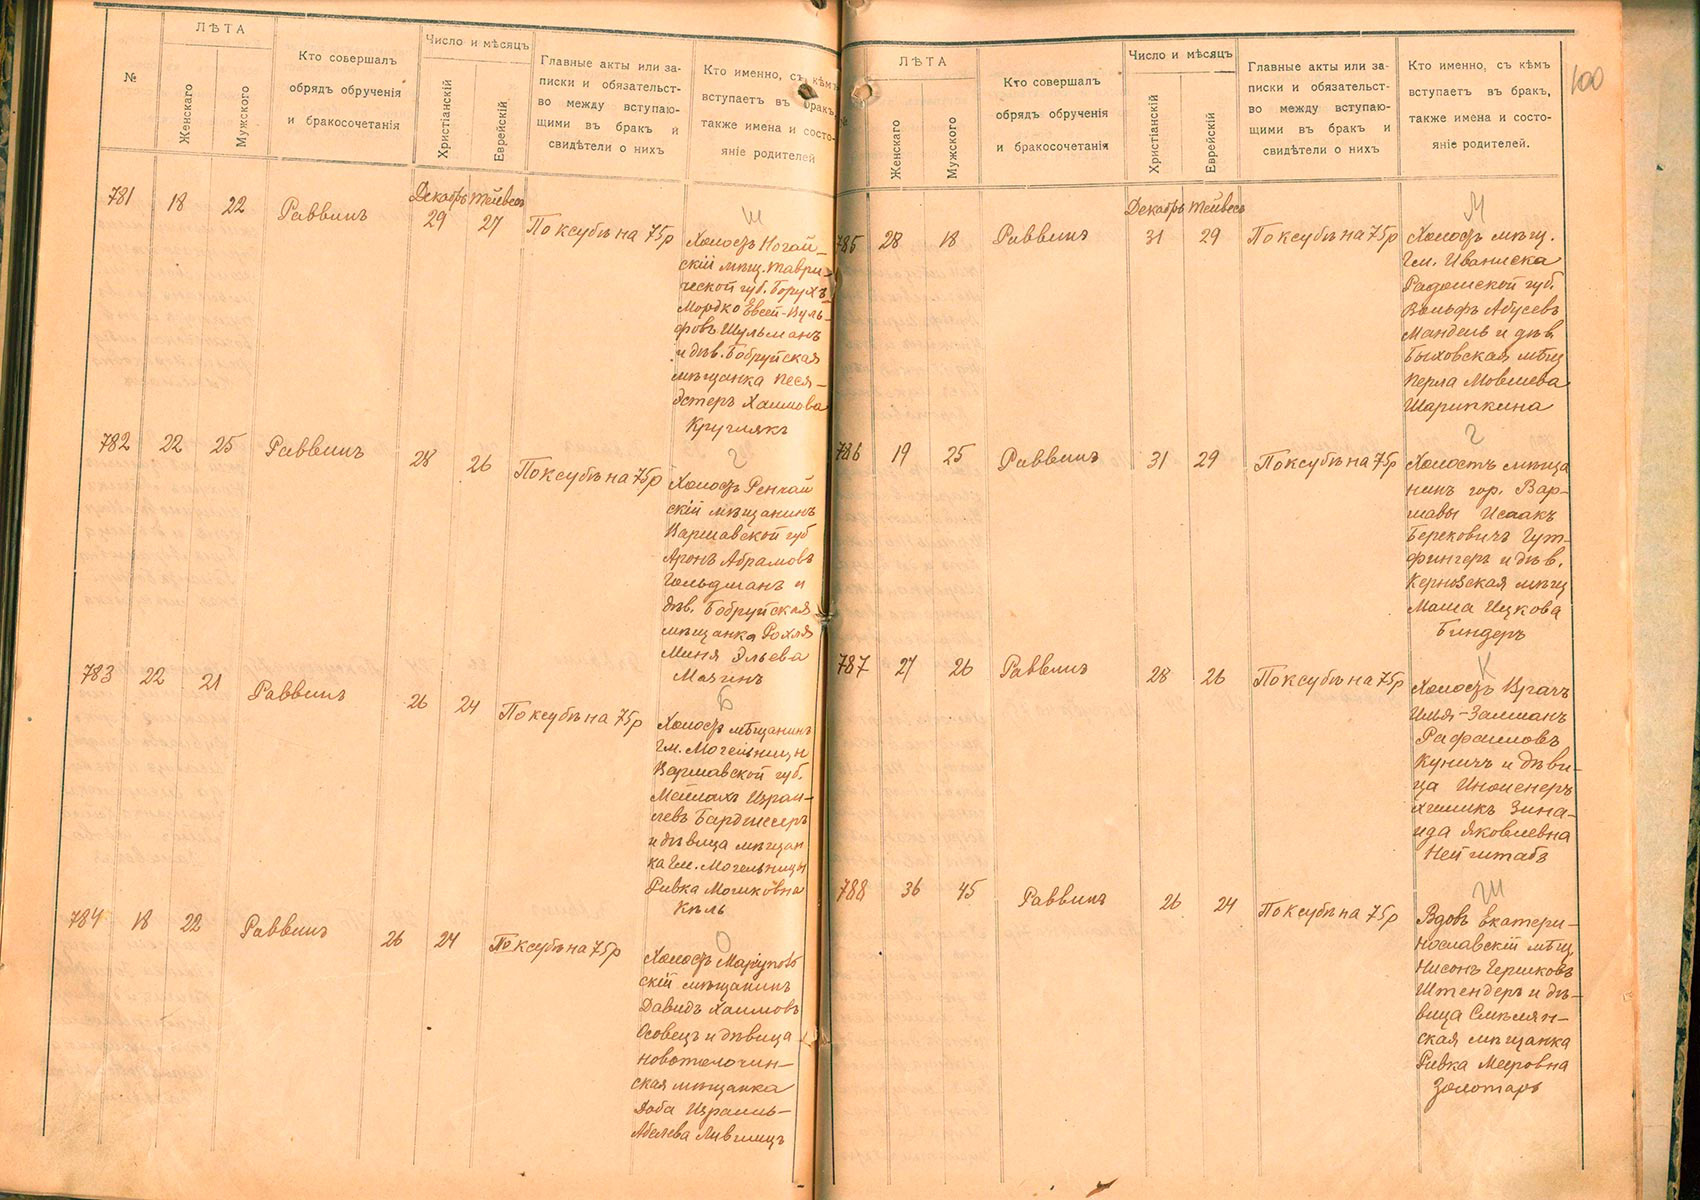 №
ЛѢТА
Женскаго
Мужского
Кто совершалъ
обрядъ обрученія
и бракосочетанія
Число и мѣсяцъ
Христіанскій
Еврейскій
Главные акты или за-
писки и обязательст-
во между вступаю-
щими въ бракъ и
свидѣтели о нихъ
Кто именно, съ кѣмъ
вступаетъ въ бракъ,
также имена и состо-
яніе родителей
781 18 22 Раввинъ Декабрь 29 Тейвесъ 27 По ксубѣ на 75р
Ш
Холост Ногай-
скій мѣщ. Таври-
ческой губ. Борухъ
Мордко Евсей-Вуль-
фовъ Шульманъ
и дѣв. Бобруйская
мѣщанка Песя-
Эстеръ Хаимова
Кругликъ
782 22 25 Раввинъ 28 26 По ксубѣ на 75р
Г
Холост
скій мѣщанинъ
Варшавской губ
Аронъ Абрамовъ
Гольдманъ и
дѣв. Бобруйская
мѣщанка Рохля
Миня Эльева
783 22 21 Раввинъ 26 24 По ксубѣ на 75р
Б
Холост мѣщанинъ
гм. Могельницы
Варшавской губ.
Мейлахъ Израи-
левъ
и дѣвица мѣщан
ка гм. Могельницы
Ривка Мошковна
784 18 22 Раввинъ 26 24 По ксубѣ на 75р
О
Холост Маріуполь
скій мѣщанинъ
Давидъ Хаимовъ
Осовецъ и дѣвица
ская мѣщанка
Доба Израиль-
Абелева Лившицъ
100
№
ЛѢТА
Женскаго
Мужского
Кто совершалъ
обрядъ обрученія
и бракосочетанія
Число и мѣсяцъ
Христіанскій
Еврейскій
Главные акты или за-
писки и обязательст-
во между вступаю-
щими въ бракъ и
свидѣтели о нихъ
Кто именно, съ кѣмъ
вступаетъ въ бракъ,
также имена и состо-
яніе родителей.
785 28 18 Раввинъ Декабрь 31 Тейвесъ 29 По ксубѣ на 75р
М
Холост мѣщ.
гм. Иваниска
Радомской губ.
Вольфъ Абусевъ
Мандель и дѣв.
Быховская мѣщ
Перла Мовшева
Шарипкина
786 19 25 Раввинъ 31 29 По ксубѣ на 75р
Г
Холостъ мѣща
нинъ гор. Вар-
шавы Исаакъ
Берековичъ Гут-
фингеръ и дѣв.
мѣщ
Маша Ицкова
Биндеръ
787 27 26 Раввинъ 28 26 По ксубѣ на 75р
К
Холост Врачъ
Илья-Залманъ
Рафаиловъ
Куничъ и дѣви-
ца Инженеръ
химикъ Зина-
ида Яковлевна
Нейштабъ
788 36 45 Раввинъ 26 24 По ксубѣ на 75р
Ш
Вдовъ Екатери-
нославскій мѣщ
Нисонъ Гершковъ
Штендеръ и дѣ-
вица Смѣлян-
ская мѣщанка
Ривка Мееровна
Золотарь